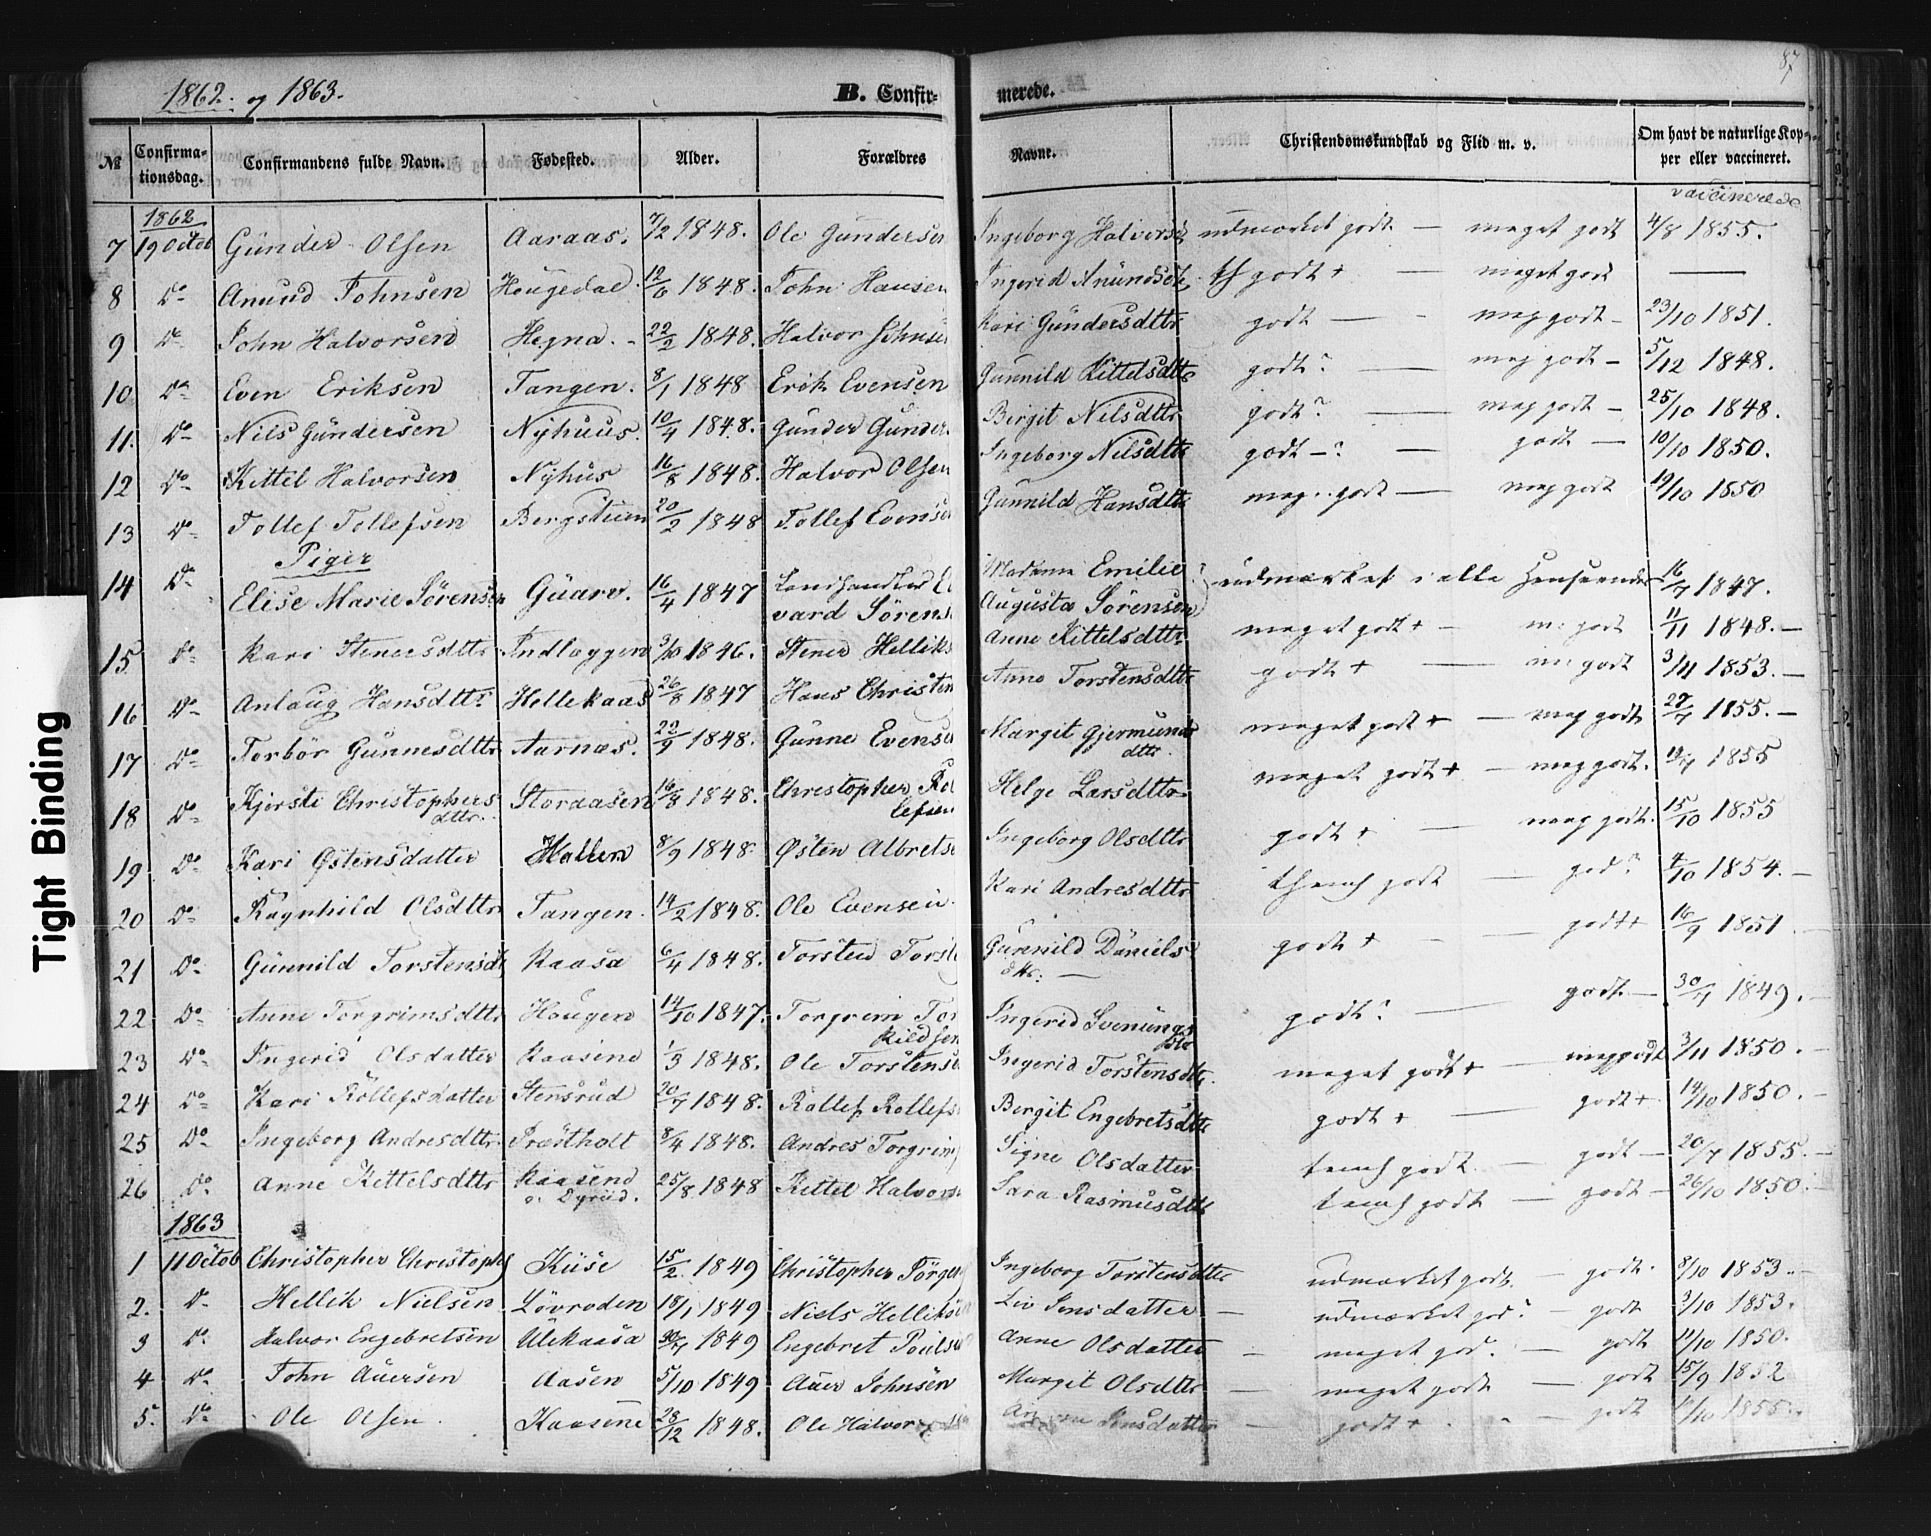 87
1862. og 1863.
B. Confir- merede.
№ Confirma-tionsdag. Confirmandens fulde Navn. Fødested. Alder. Forældres Navne. Christendomskundskab og Flid m. v. Om havt de naturlige Kop-per eller vaccineret.
1862 vaccinerede
7 19 Octob Gunder Olsen Aaraas. 7/2 1848. Ole Gundersen Ingeborg Halvorsdt udmærket godt — meget godt 4/8 1855.
8 Do Anund Johnsen Hougedal. 12/6 1848. John Hansen Ingerid Anundsdt godt + — meget godt —
9 Do John Halvorsen Hegna. 22/2 1848. Halvor Johnse Kari Gundersdttr godt — meg godt — 23/10 1851.
10 Do Even Eriksen Tangen. 8/1 1848 Erik Evensen Gunnild Kittelsdttr godt? — meg godt — 5/12 1848.
11. Do Nils Gundersen Nyhuus. 10/4 1848. Gunder Gunder Birgit Nilsdttr godt? — meg godt — 25/10 1848.
12 Do Kittil Halvorsen Nyhus 16/8 1848. Halvor Olsen Ingeborg Nilsdttr godt —? — godt — 10/10 1850.
13 Do Tollef Tollefsen Bergstuen 20/2 1848 Tollef Evense Gunnild Hansdttr meg. godt — meg godt 19/10 1850
Piger
14 Do Elise Marie Sørensen Guare. 16/4 1847 Landhandler Ed
vard Sørens Madame Emilie
Augusta Sørensen udmærket i alle Henseender 16/7 1847.
15 Do Kari Stenersdttr Indlæggen 3/10 1846. Stener Helliks Anne Kittelsdttr meget godt + — m: godt 11/11 1848. —
16 Do Anlaug Hansdttr Hellekaas 26/8 1847 Hans Christen Anne Torstensdttr godt + — m: godt 3/11 1853. —
17 Do Torbør Gunnesdttr Aarnæs. 22/9 1848. Gunne Evense Margit Gjermunds
dttr. meget godt + — meg godt 27/7 1855. —
18 Do Kjersti Christophers
dttr. Storaasen 16/8 1848. Christopher Rol
lefsen Helge Larsdttr meget godt + — meg godt. 1855
19 Do Kari Østensdatter Hallen 8/9 1848. Østen Albretse Ingeborg Olsdttr godt + — meg godt. 15/10 1855
20 Do Ragnhild Olsdttr Tangen. 14/2 1848. Ole Evensen. Kari Andresdttr godt — god? 4/10 1854. —
21 Do Gunnild Torstensdt Kaasa 6/4 1848. Torsten Torst Gunnild Daniels
dttr. — godt + — godt + 16/9 1851
22 Do Anne Torgrimsdttr Haugen 14/10 1847. Torgrim Tor
kildsen Ingerid Svenungs
dttr godt? — godt — 30/7 1849. —
23 Do Ingerid Olsdatter Kaasene 1/3 1848. Ole Torstense Ingerid Torstensdttr. meget godt + — meg godt 3/11 1850. —
24 Do Kari Rollefsdatter Stensrud 20/7 1848. Rollef Rollefs Bergit Engebretsdttr godt + — godt + 14/10 1850. —
25 Do Ingeborg Andresdttr Præstholt 8/4 1848. Andres Torgrim Signe Olsdatter godt — godt — 20/7 1855. —
26 Do Anne Kittelsdttr Kaasene
o. Dyrud. 25/8 1848 Kittel Halvorse Sara Rasmusdttr godt — godt — 26/10 1850.
1863
1 11 Octob Christopher Christophs Kuse 15/2 1849 Christopher Jørgen Ingeborg Torstensdttr udmærket godt. — godt. 8/10 1853. —
2. Do Hellik Nielsen Løvroden 18/1 1849 Niels Helliksen Liv Jensdatter — udmærket god? — godt 3/10 1853.
3 Do Halvor Engebretsen Ulekaasa 30/7 1849 Engebret Pouls Anne Olsdatter — meget god. — godt 19/10 1850.
4 Do John Auersen Aasen 5/10 1849 Auer Johnsen Margit Olsdttr — meget godt — godt 15/9 1852
5. Do Ole Olsen. Kaasene 28/12 1848. Ole Halvor Jensdatter godt + — godt 1855.
Tight Binding